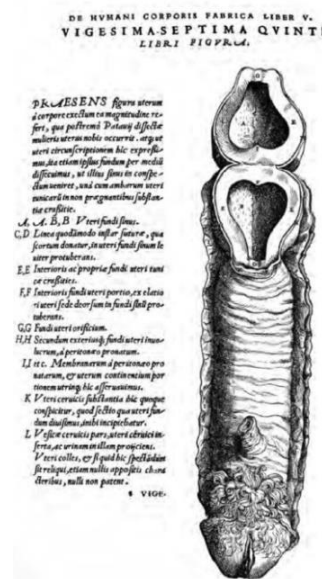 DE HVMANI CORPORIS FABRICA LIBER V.
VIGESIMA-SEPTIMA QVINTI
LIBRI FIGVRA.
PRAESENS figura uterum
à corpore exectum ea magnitudine re-
fert, qua postremò Patauij dissectæ
mulieris uterus nobis occurrit. atq; ut
uteri circunscriptionem hic expressi-
mus, ita etiam ipsius fundum per mediũ
dissecuimus, ut illius sinus in conspe-
ctum ueniret, unà cum ambarum uteri
tunicarũ in non prægnantibus substan-
tiæ crassitie.
A, A. B, B Vteri fundi sinus.
C, D Linea quodãmodo instar suturæ, qua
scortum donatur, in uteri fundi sinum le
uiter protuberans.
E, E Interioris ac propriæ fundi uteri tuni
cæ crassities.
F, F Interioris fundi uteri portio, ex elatio
ri uteri sede deorsum in fundi sinũ pro-
tuberans.
G, G Fundi uteri orificium.
H, H Secundum exteriusq; fundi uteri inuo-
lucrum, à peritonæo pronatum.
I, I etc. Membranarum à peritonæo pro
natarum, & uterum continentium por
tionem utrinq; hic asseruauimus.
K Vteri ceruicis substantia hic quoque
conspicitur, quod sectio qua uteri fun-
dum diuisimus, inibi incipiebatur.
L Vesicæ ceruicis pars, uteri ceruici in-
serta, ac urinam in illam proijciens.
Vteri colles, & si quid hic spectãdum
sit reliqui, etiam nullis appositis chara
cteribus, nulli non patent.
VIGE-